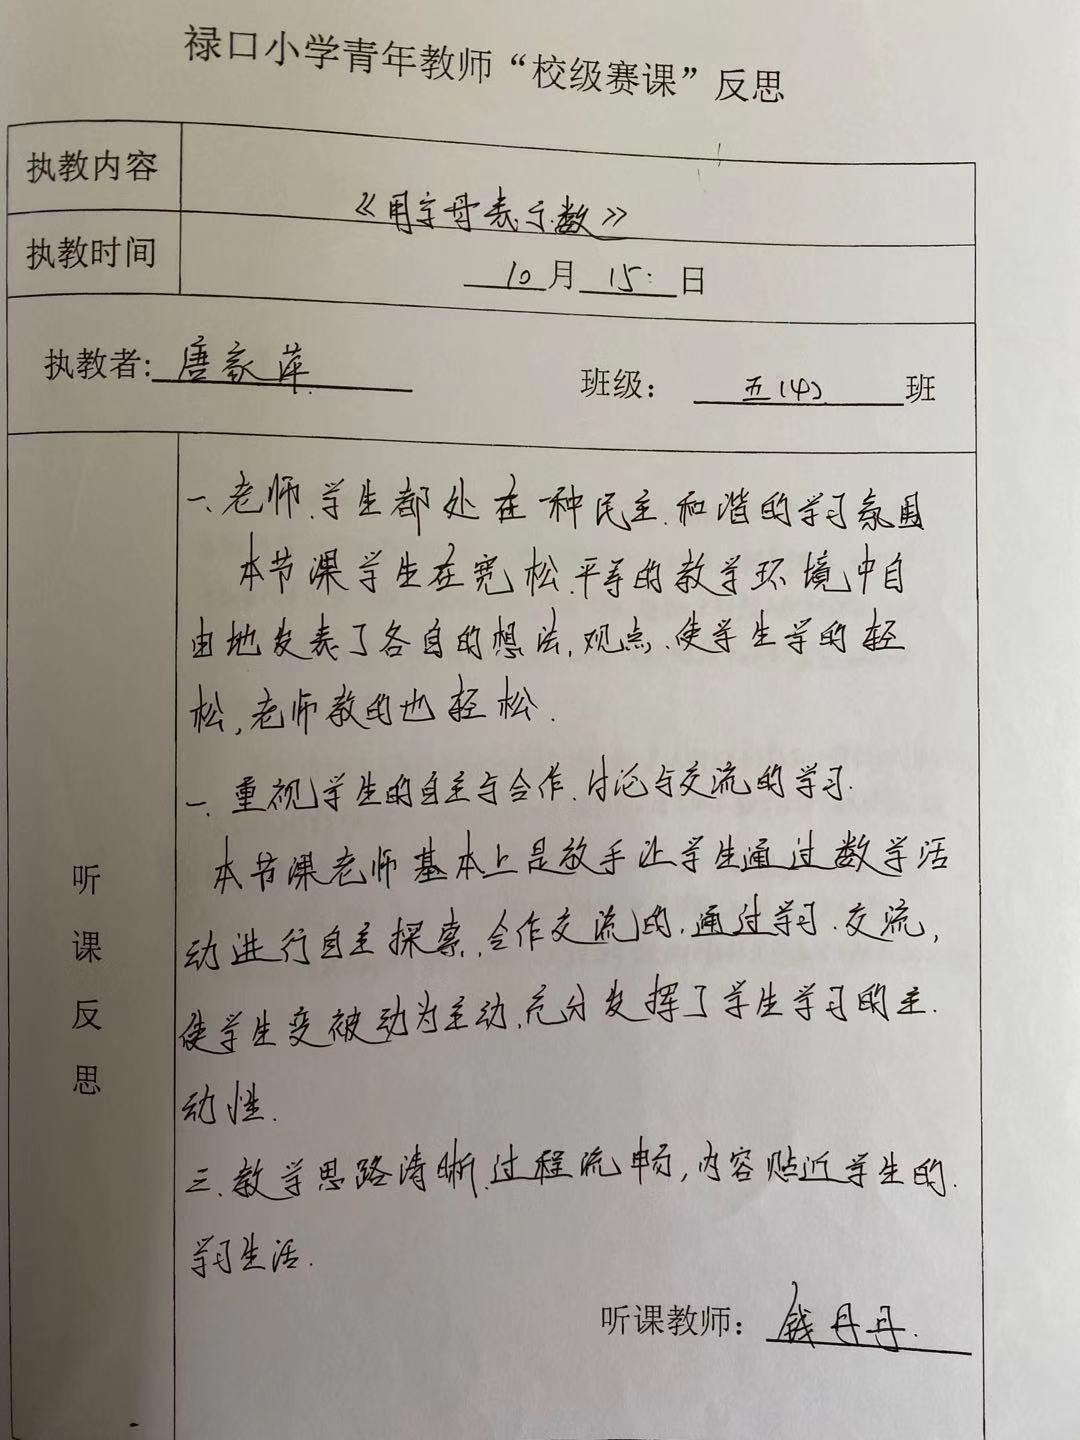 禄口小学青年教师“校级赛课”反思
执教内容
《用字母表示数》
执教时间
10月15日
执教者:唐家萍
班级:五(4)班
听课反思
一、老师、学生都处在一种民主、和谐的学习氛围
本节课学生在宽松、平等的教学环境中自
由地发表了各自的想法,观点、使学生学的轻
松,老师教的也轻松.
一、重视学生的自主与合作、讨论与交流的学习.
本节课老师基本上是放手让学生通过数学活
动进行自主探索,合作交流的,通过学习、交流,
使学生变被动为主动,充分发挥了学生学习的主
动性.
三、教学思路清晰,过程流畅,内容贴近学生的
学习生活.
听课教师:钱丹丹